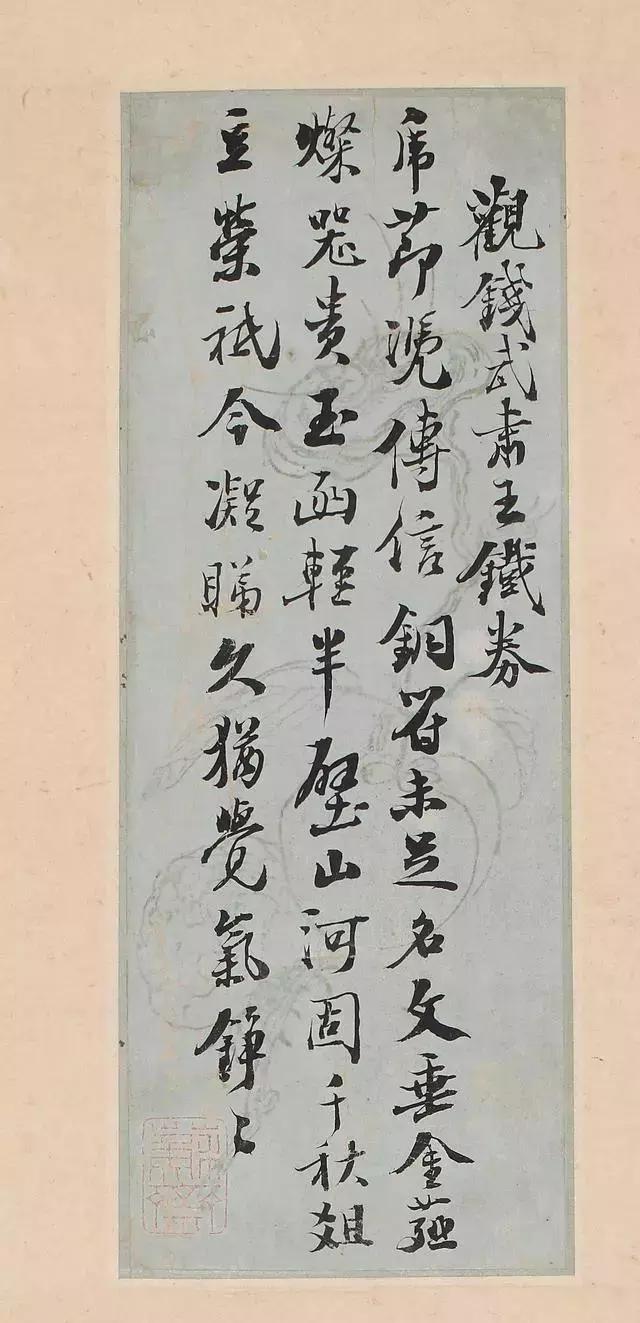 觀錢武肅王鐵券
虎節傳信銅符未足名文垂金薤
燦器貴玉函輕半壁山河固千秋俎
豆榮祗今凝睇久猶覺氣錚〻